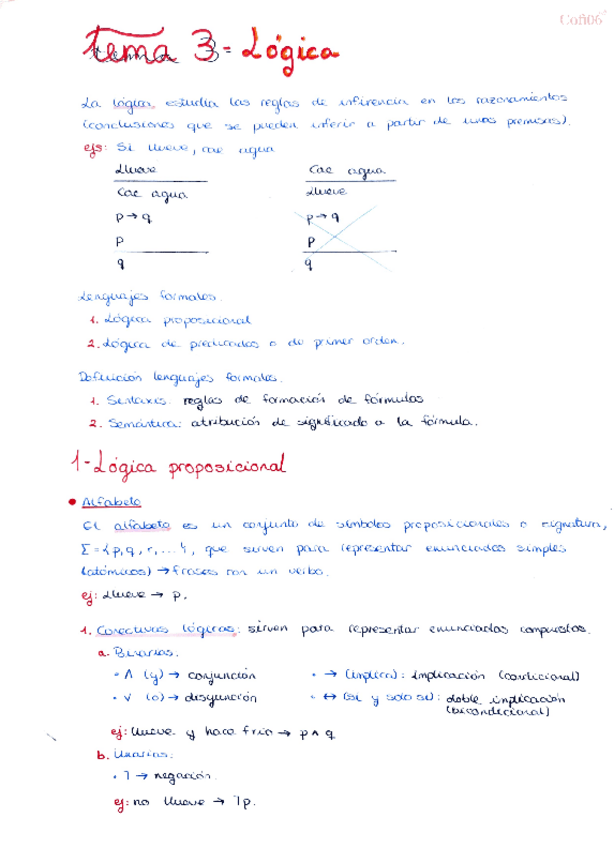 Cofi06
Tema 3 = Lógica
La lógica estudia las reglas de inferencia en los razonamientos
(conclusiones que se pueden inferir a partir de unas premisas).
ejs: Si llueve, cae agua
Llueve
Cae agua
p → q
p
q
Cae agua
Llueve
p → q
p
q
Lenguajes formales.
1. Lógica proposicional
2. Lógica de predicados o de primer orden.
Definición lenguajes formales.
1. Sintaxis: reglas de formación de fórmulas
2. Semántica: atribución de significado a la fórmula.
1- Lógica proposicional
• Alfabeto
El alfabeto es un conjunto de símbolos proposicionales o signatura,
Σ = {p, q, r, ...}, que sirven para representar enunciados simples
(atómicos) → frases con un verbo.
ej: Llueve → p.
1. Conectivas lógicas: sirven para representar enunciados compuestos.
a. Binarias.
• ∧ (y) → conjunción
• ∨ (o) → disyunción
• → (implica): implicación (condicional)
• ↔ (si y solo si): doble implicación
(bicondicional)
ej: llueve y hace frío → p ∧ q
b. Unarias:
• ¬ → negación.
ej: no llueve → ¬p.